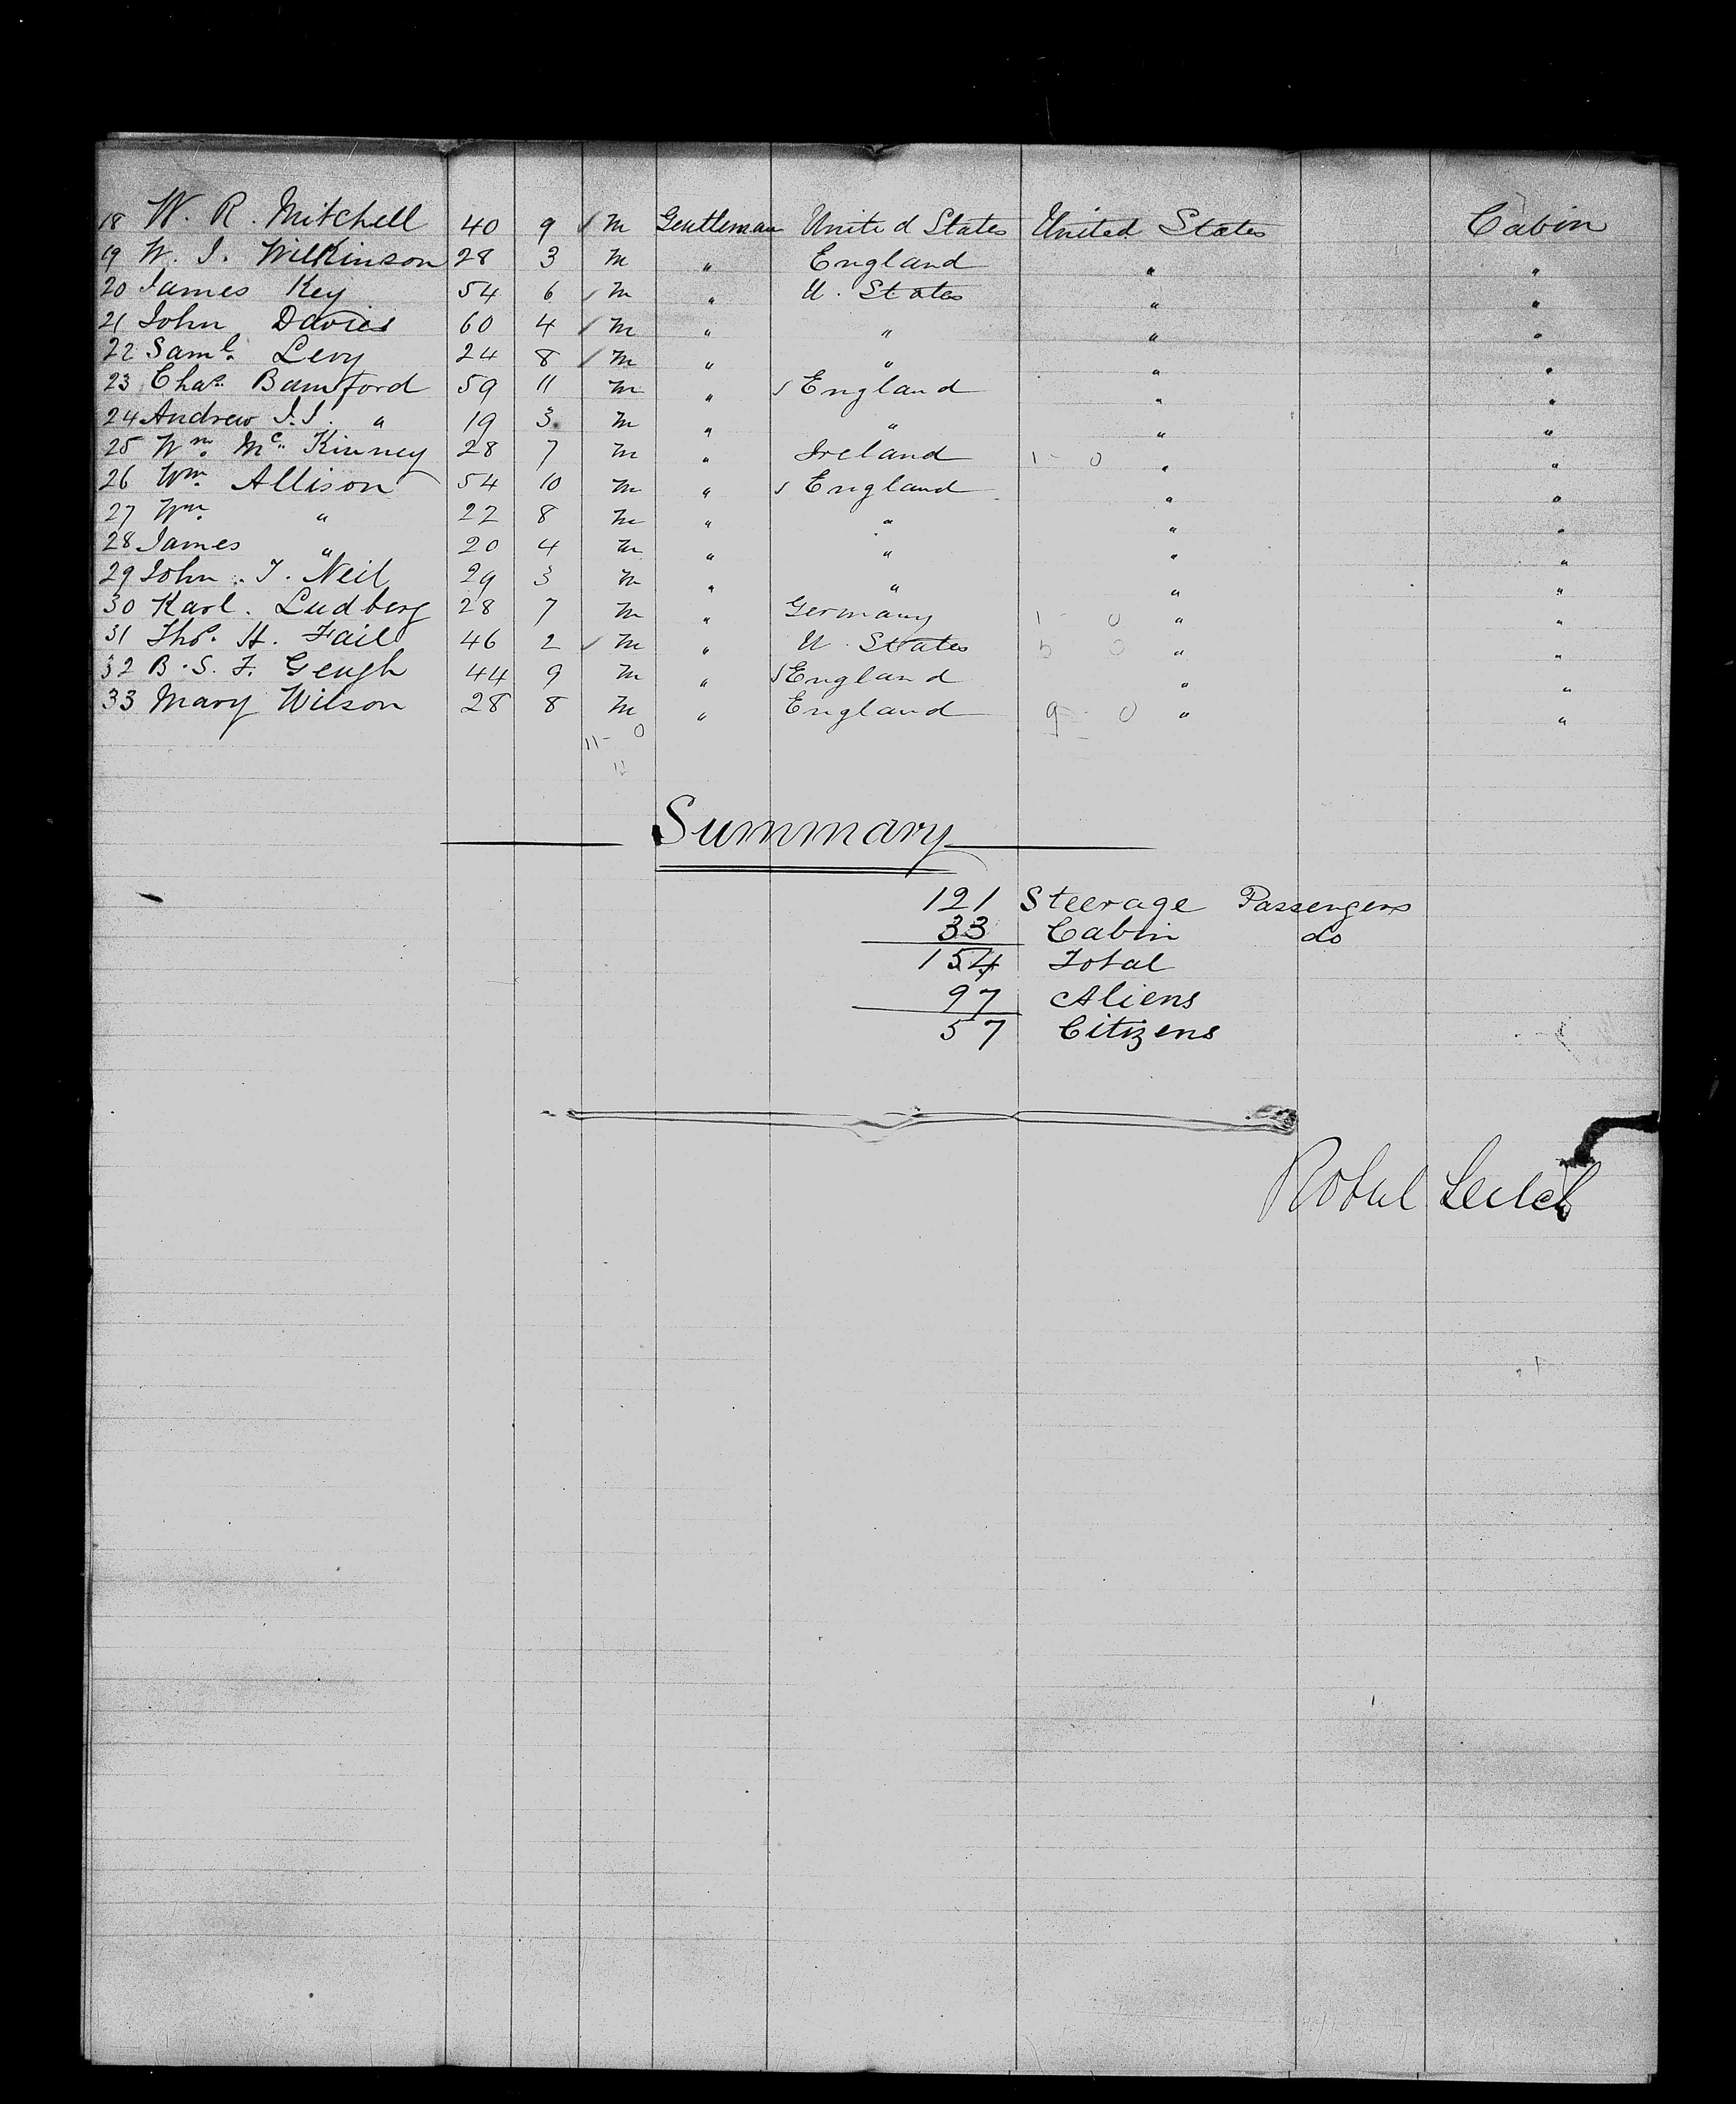 18 W. R. Mitchell 40 9 ✓ M Gentleman United States United States Cabin
19 W. J. Wilkinson 28 3 M " England " "
20 James Key 54 6 ✓ M " U. States " "
21 John Davies 60 4 ✓ M " " " "
22 Saml. Levy 24 8 ✓ M " " " "
23 Chas. Bamford 59 11 M " England " "
24 Andrew J.J. " 19 3 M " " " "
25 Wm. Mc. Kinney 28 7 M " Ireland 1 - 0 " "
26 Wm. Allison 54 10 M " England " "
27 Wm. " 22 8 M " " " "
28 James " 20 4 M " " " "
29 John . T. Neil 29 3 M " " " "
30 Karl. Ludberg 28 7 M " Germany 1 - 0 " "
31 Thos. H. Fail 46 2 ✓ M " U. States 5 0 " "
32 B. S. F. Geugh 44 9 M " England " "
33 Mary Wilson 28 8 M " England 9 - 0 " "
11 - 0
Summary
121 Steerage Passengers
33 Cabin do
154 Total
97 Aliens
57 Citizens